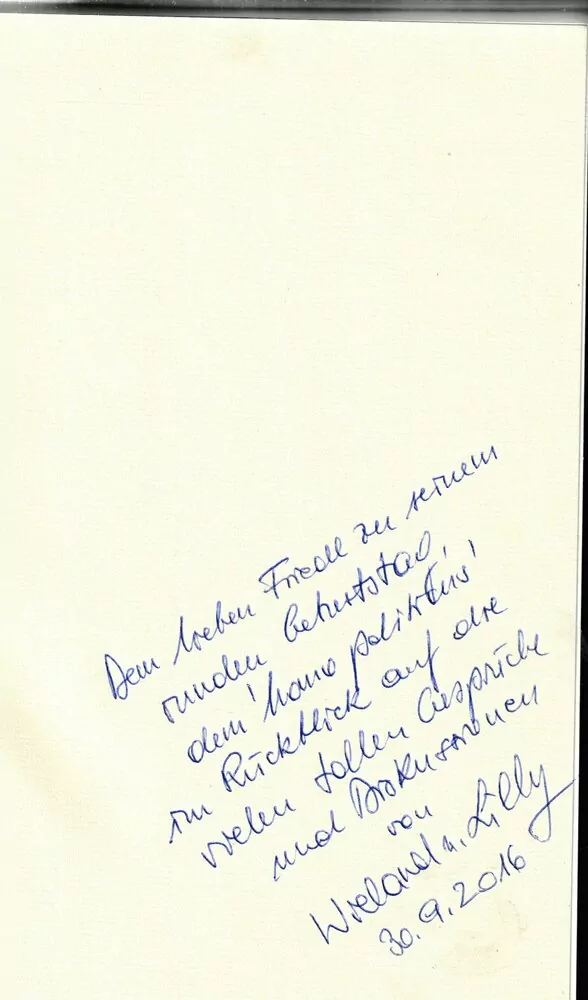 Dem lieben Friedl zu seinem
runden Geburtstag,
dem 'homo politikus'
im Rückblick auf die
vielen tollen Gespräche
und Diskussionen
von
Wieland u. Lilly
30.9.2016